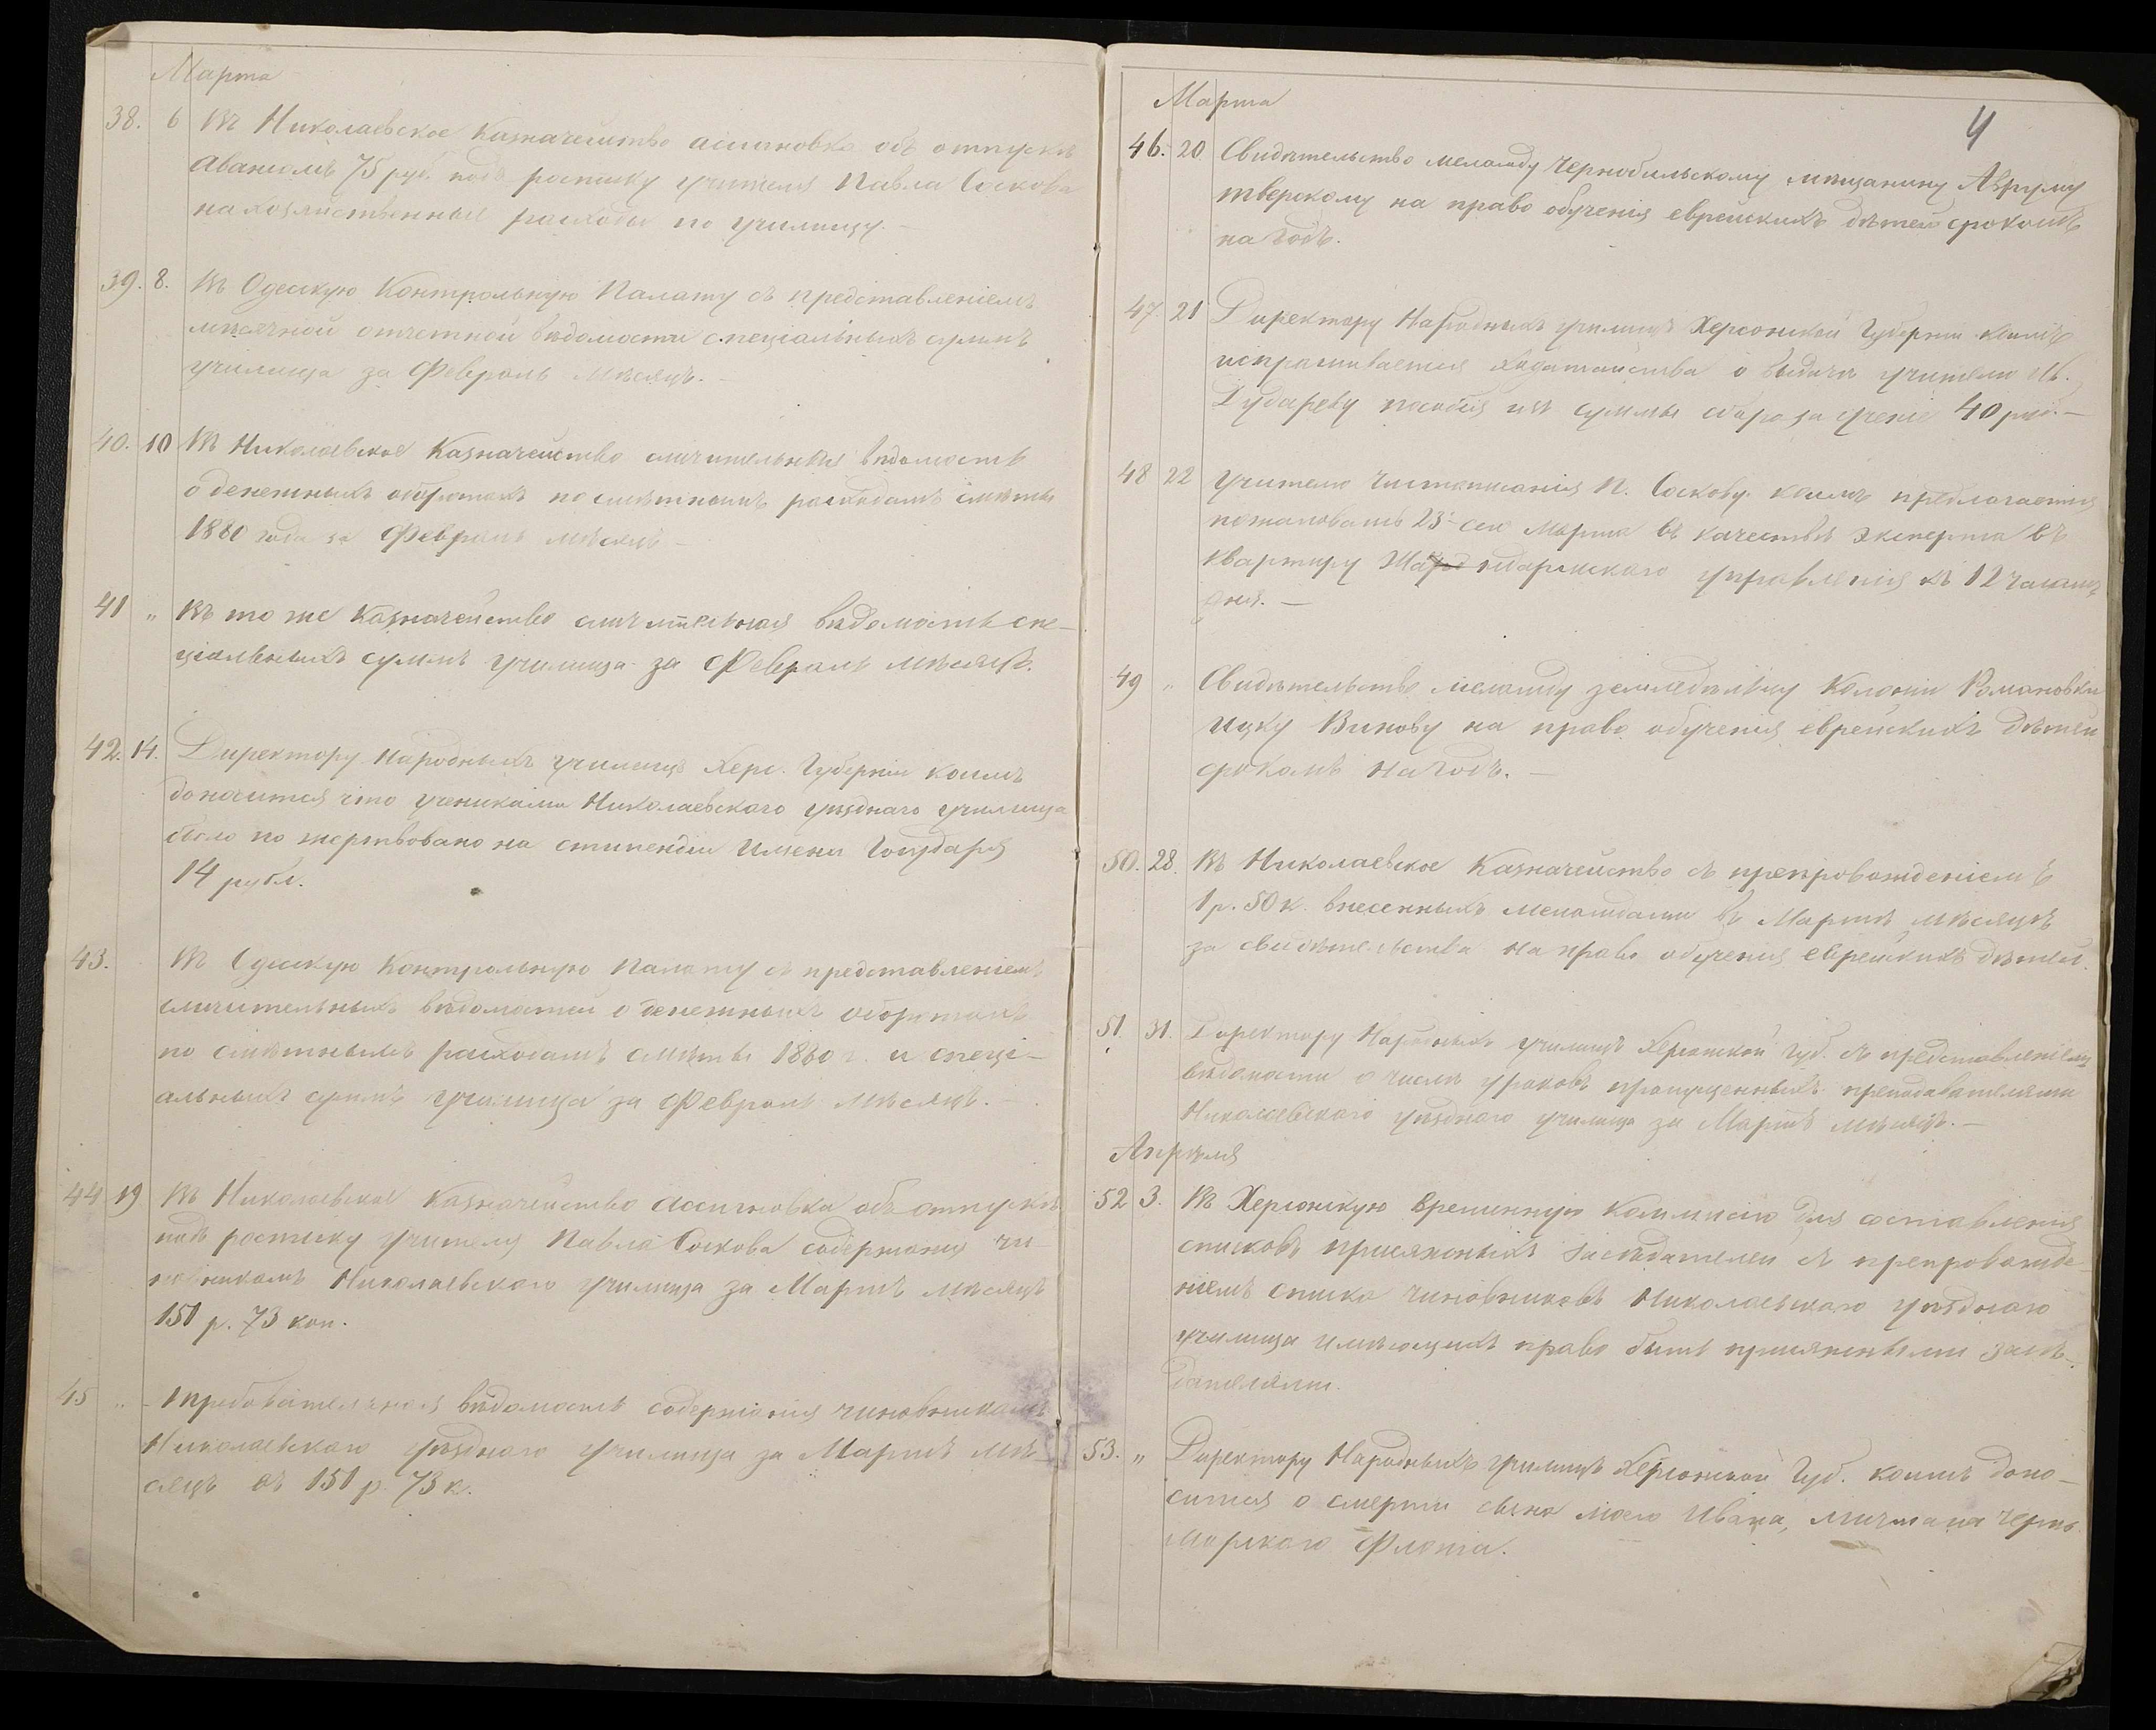 Марта
38. 6 Въ Николаевское Казначейство асигновка объ отпускѣ
Авансомъ 75 руб. подъ росписку учителя Павла Соскова
на хозяйственные расходы по училищу. —
39. 8. Въ Одесскую Контрольную Палату съ представленіемъ
мѣсячной отчетной вѣдомости спеціальныхъ суммъ
училища за Февраль мѣсяцъ. —
40. 10 Въ Николаевское Казначейство сличительная вѣдомость
о денежныхъ оборотахъ по смѣтнымъ расходамъ смѣты
1880 года за Февраль мѣсяцъ —
41 „ Въ то же Казначейство сличительная вѣдомость спе-
ціальныхъ суммъ училища за Февраль мѣсяцъ.
42. 14. Директору Народныхъ училищъ Херс. Губерніи коимъ
доносится что учениками Николаевскаго уѣзднаго училища
было по жертвовано на стипендіи имени Государя
14 рубл.
43. Въ Одесскую Контрольную Палату съ представленіемъ
сличительныхъ вѣдомостей о денежныхъ оборотахъ
по смѣтнымъ расходамъ смѣты 1880 г. и спеці-
альныхъ суммъ училища за Февраль мѣсяцъ. —
44 19 Въ Николаевское Казначейство Ассигновка объ отпускѣ
подъ росписку учителя Павла Соскова содержанія чи-
новникамъ Николаевскаго училища за Мартъ мѣсяцъ
151 р. 73 коп.
45 „ Требовательная вѣдомость содержанія чиновникамъ
Николаевскаго уѣзднаго училища за Мартъ мѣ-
сяцъ въ 151 р. 73 к.
4
Марта
46. 20 Свидѣтельство меламду Чернобыльскому мѣщанину Авруму
Тверскому на право обученія еврейскихъ дѣтей срокомъ
на годъ.
47. 21 Директору Народныхъ училищъ Херсонской Губерніи коимъ
испрашивается ходатайства о выдачи учителю
Губареву пособія изъ суммы сбора за ученіе 40 руб. —
48 22 Учителю Чистописанія П. Соскову коимъ предлагается
пожаловать 23 сего Марта въ качествѣ эксперта въ
квартиру Жандармскаго управленія къ 12 часамъ
дня. —
49 „ Свидѣтельство меламду земледѣльцу Колоніи Романовки
Ицку Винову на право обученія еврейскихъ дѣтей
срокомъ на годъ. —
50. 28. Въ Николаевское Казначейство съ препровожденіемъ
1 р. 50 к. внесенныхъ меламдами въ Мартѣ мѣсяцѣ
за свидѣтельства на право обученія еврейскихъ дѣтей.
51. 31. Директору Народныхъ училищъ Херсонской Губ. съ представленіемъ
вѣдомости о числѣ уроковъ пропущенныхъ преподавателями
Николаевскаго уѣзднаго училища за Мартъ мѣсяцъ. —
Апрѣля
52 3. Въ Херсонскую временную Коммисію для составленія
списковъ присяжныхъ засѣдателей съ препровожде-
ніемъ списка чиновниковъ Николаевскаго уѣзднаго
училища имѣющихъ право быть присяжными засѣ-
дателями.
53. „ Директору Народныхъ училищъ Херсонской Губ. коимъ доно-
сится о смерти сына моего Ивана, мичмана Черно-
морскаго Флота.